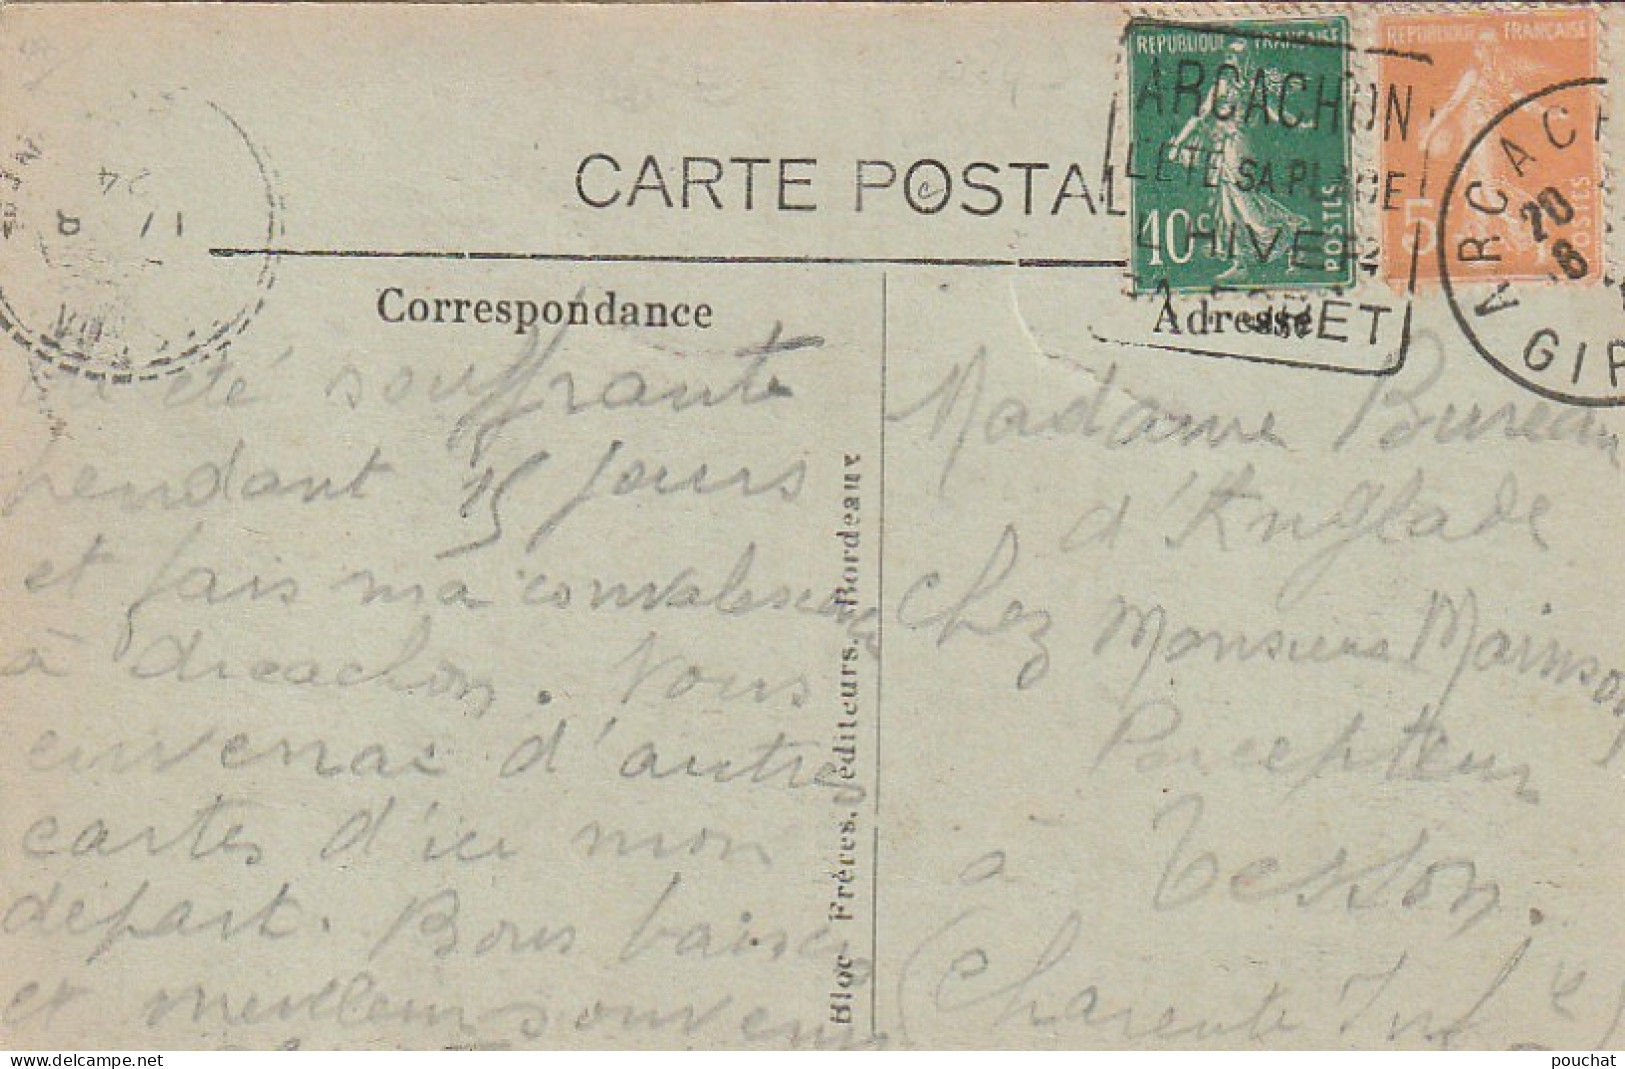 REPUBLIQUE FRANÇAISE
10c
POSTES
REPUBLIQUE FRANÇAISE
5c
POSTES
ARCACHON
L'ETE SA PLAGE
L'HIVER
SA FORET
ARCACH
20
8
GIR
24
CARTE POSTAL
Correspondance
Adresse
été souffrante
pendant 15 jours
et fais ma convalescence
à Arcachon. Vous
enverrai d'autres
cartes d'ici mon
départ. Bons baisers
et meilleurs souvenirs
Bloc Frères, éditeurs, Bordeaux
Madame Bureau
d'Anglade
chez Monsieur Mainson
Percepteur
à Tesson.
(Charente Infre
pouchat